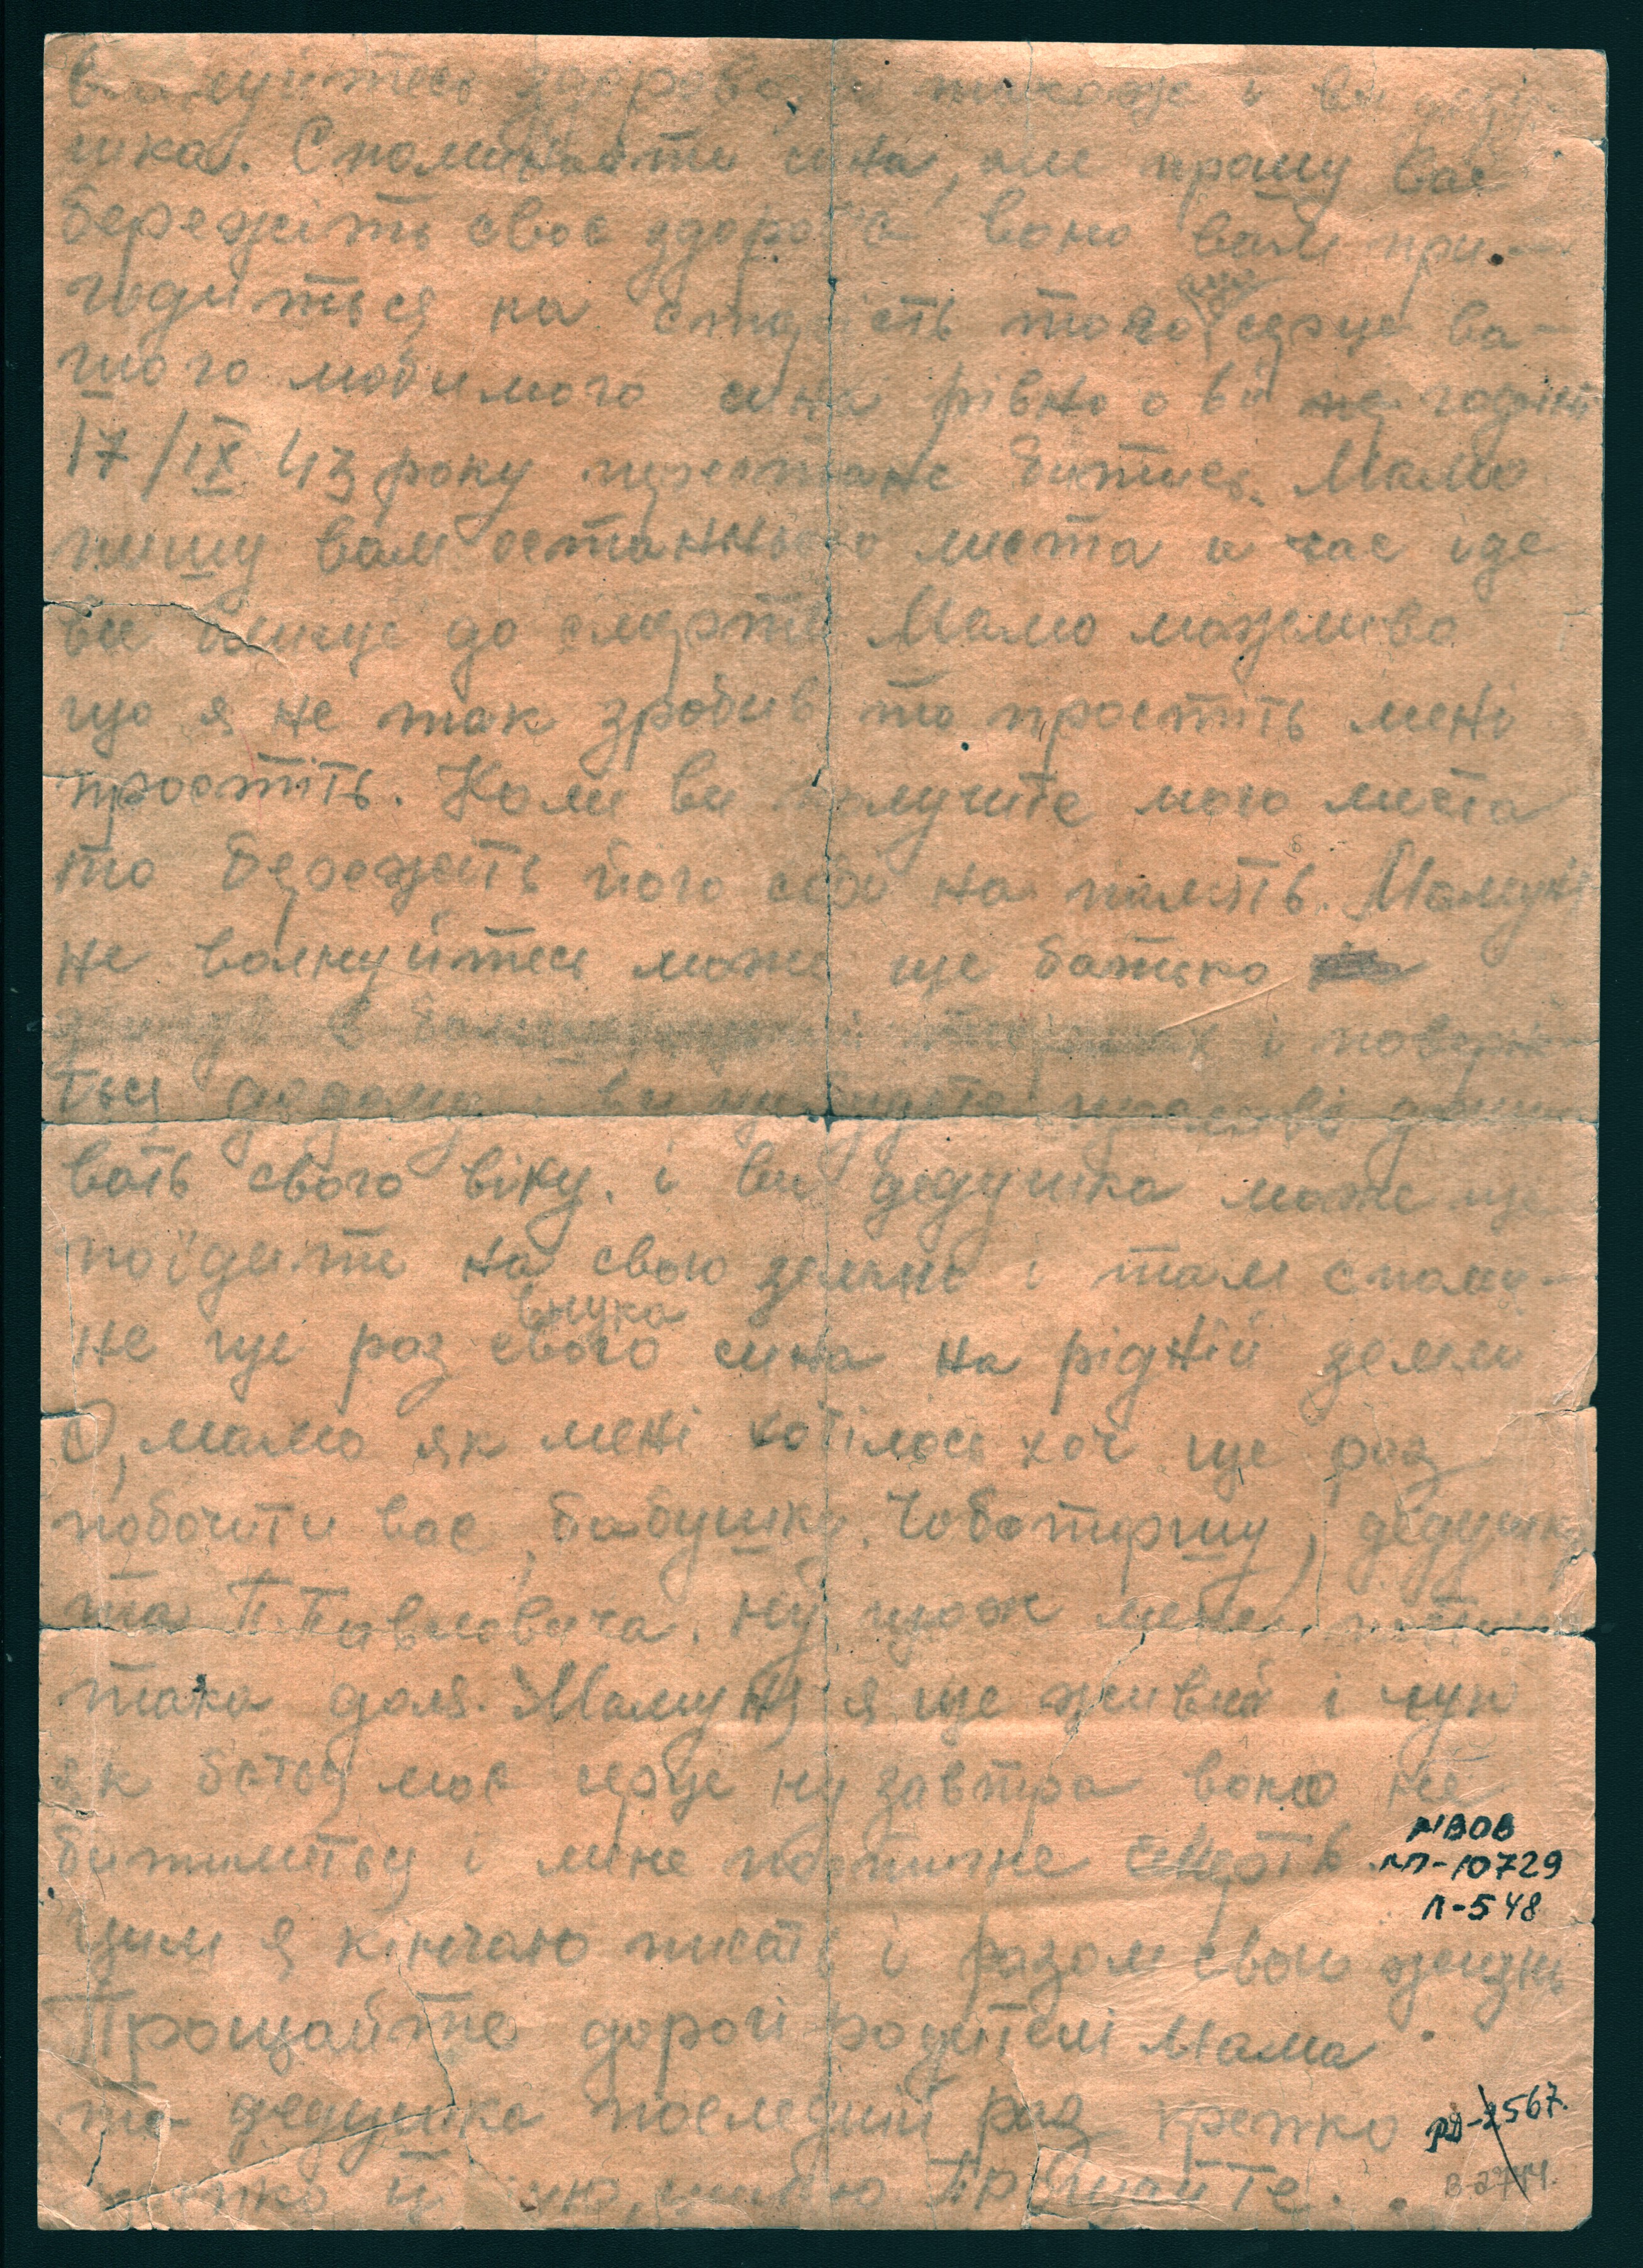 здорова, а також і ви деду
шка. Споминайте сина, але прошу вас
бережіть своє здоровʼє воно вам при-
годиться на старість того серце ва-
шого любимого сина рівно о 6 й годині
17/IX 43 року перестане битись. Мамо
пишу вам останнього листа а час іде
все ближче до смерти Мамо можливо
що я не так зробив то простіть мені
простіть. Коли ви получите мого листа
то бережіть його собі на память. Мамуня
не волнуйтесь може ще батько
і поверне
ться додому і ви ще будете дожи
вать свого віку. і ви дедушка може ще
поїдите на свою землю і там спомя-
не ще раз свого внука сина на рідній земли
О, мамо як мені хотілось хоч ще раз
побочити вас, бабушку, Чоботиршу, дедушку
та П. Павловича. Ну що ж мене постигла
така доля. Мамуня я ще живий і чую
як бється моє серце ну завтра воно не
битиметься і мене постигне смерть.
Цим я кінчаю писать і разом свою жизнь
Прощайте дорогі родителі Мама
та дедушка последній раз крепко
крепко цілую, цілую Прощайте.
МВОВ
КП-10729
Л-548
РД-2567.
В-2744.